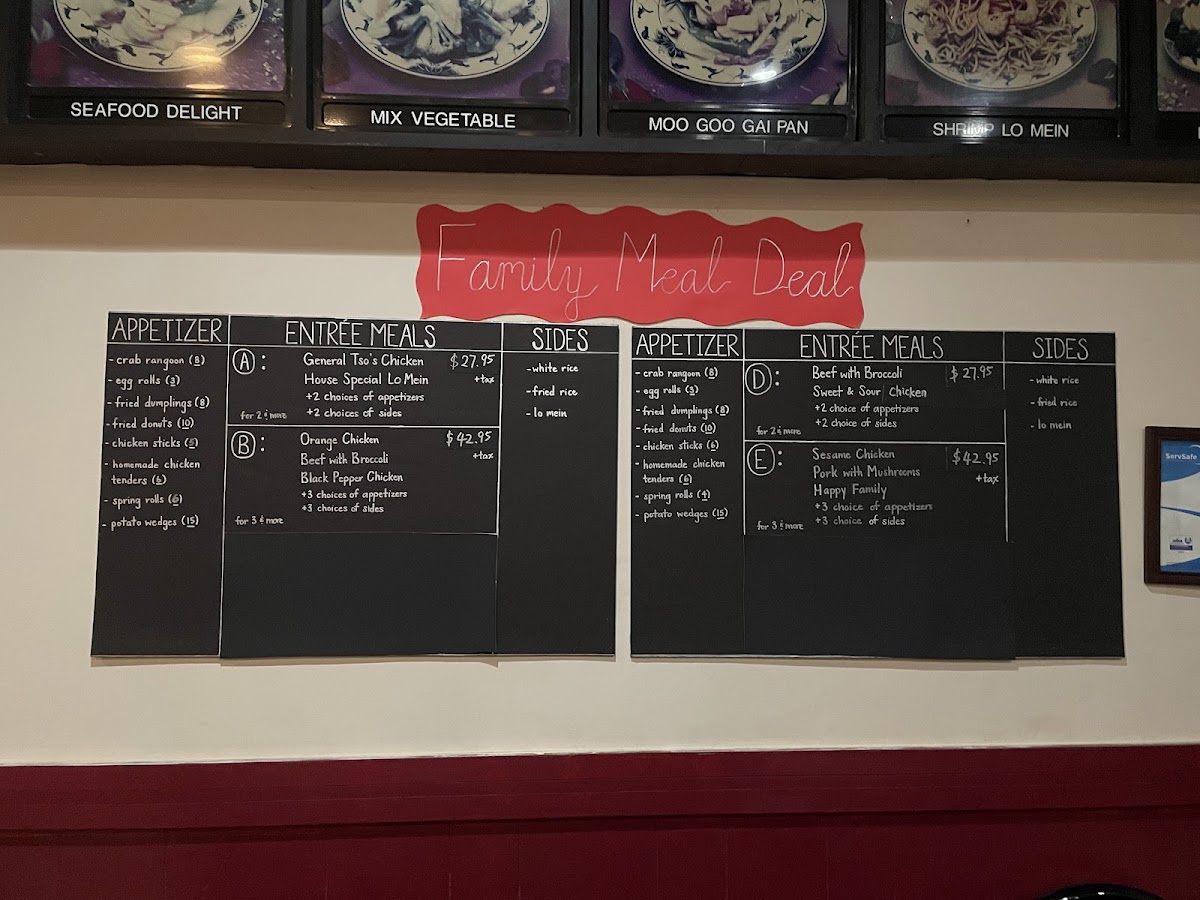 SEAFOOD DELIGHT
MIX VEGETABLE
MOO GOO GAI PAN
SHRIMP LO MEIN
Family Meal Deal
APPETIZER
- crab rangoon (8)
- egg rolls (3)
- fried dumplings (8)
- fried donuts (10)
- chicken sticks (5)
- homemade chicken
tenders (6)
- spring rolls (6)
- potato wedges (15)
ENTRÉE MEALS
A: General Tso's Chicken $27.95
House Special Lo Mein +tax
+2 choices of appetizers
for 2 & more +2 choices of sides
B: Orange Chicken $42.95
Beef with Broccoli +tax
Black Pepper Chicken
+3 choices of appetizers
+3 choices of sides
for 3 & more
SIDES
-white rice
-fried rice
-lo mein
APPETIZER
- crab rangoon (8)
- egg rolls (3)
- fried dumplings (8)
- fried donuts (10)
- chicken sticks (6)
- homemade chicken
tenders (6)
- spring rolls (4)
- potato wedges (15)
ENTRÉE MEALS
D: Beef with Broccoli $27.95
Sweet & Sour Chicken
+2 choice of appetizers
+2 choice of sides
for 2 & more
E: Sesame Chicken $42.95
Pork with Mushrooms +tax
Happy Family
+3 choice of appetizers
for 3 & more +3 choice of sides
SIDES
-white rice
-fried rice
-lo mein
ServSafe